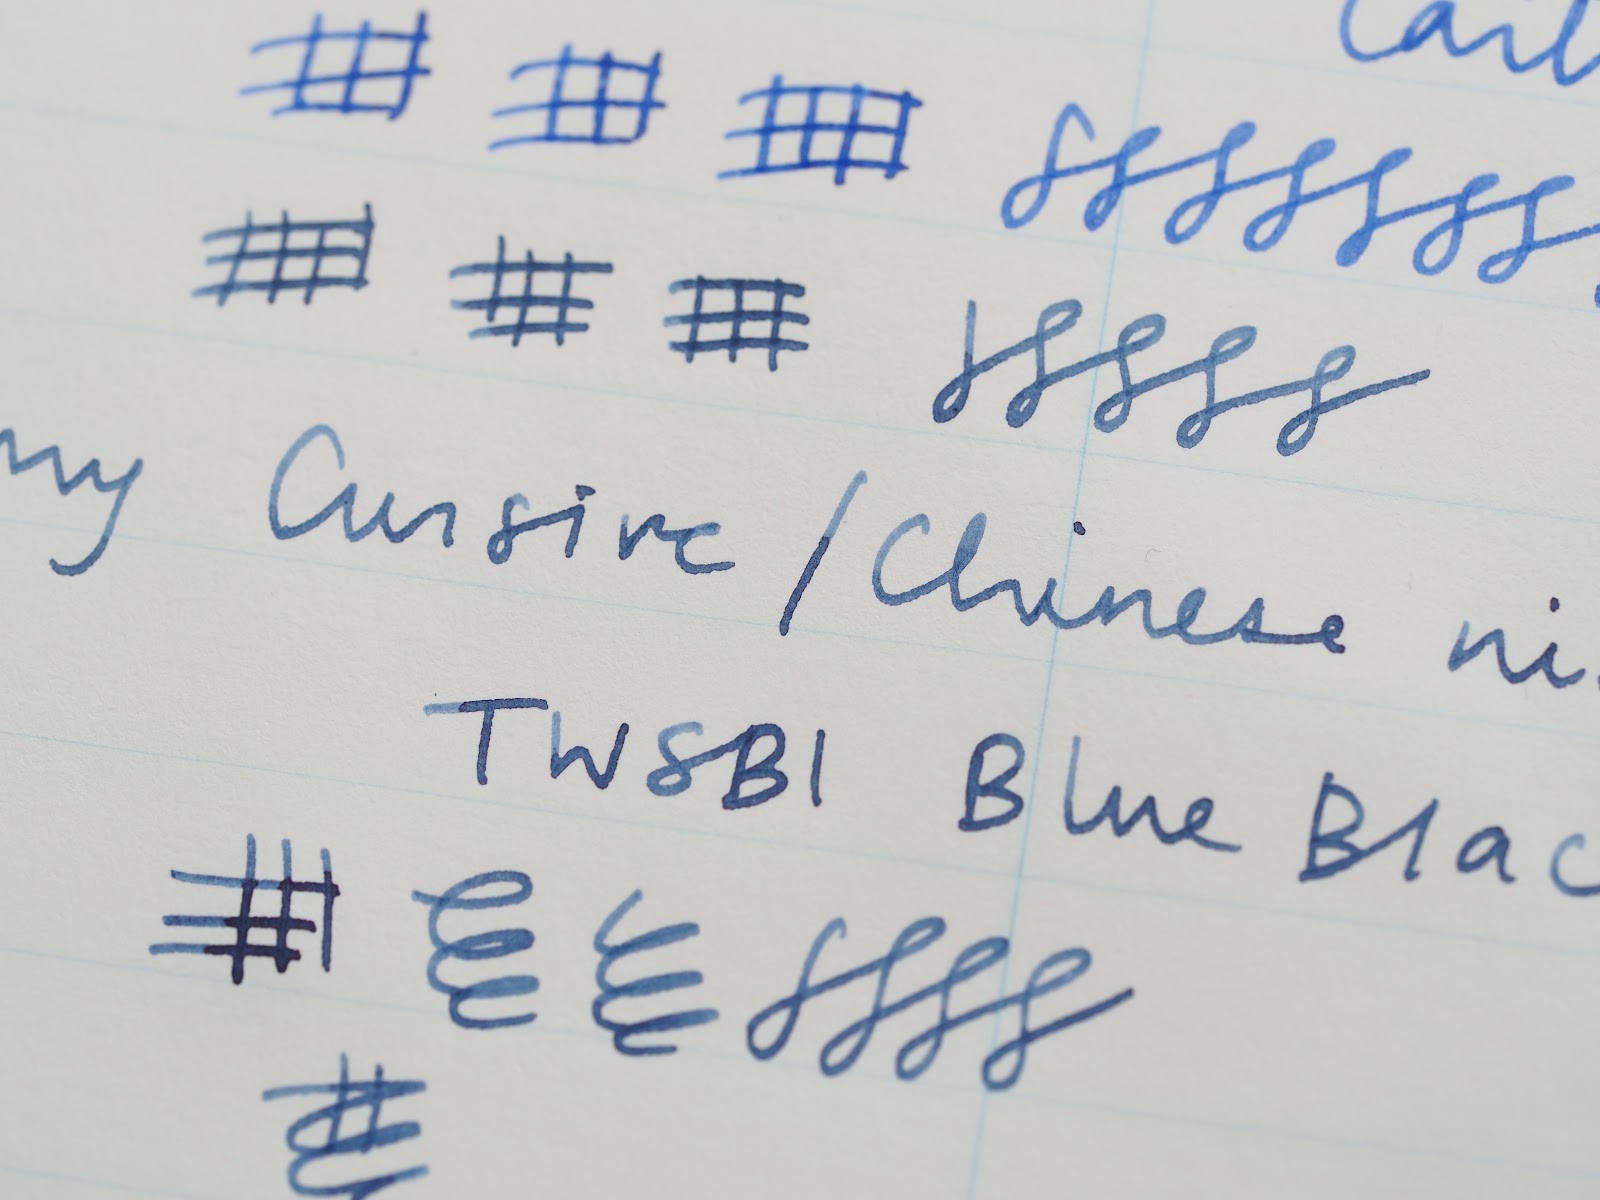 my Cursive / Chinese
TWSBI Blue Blac